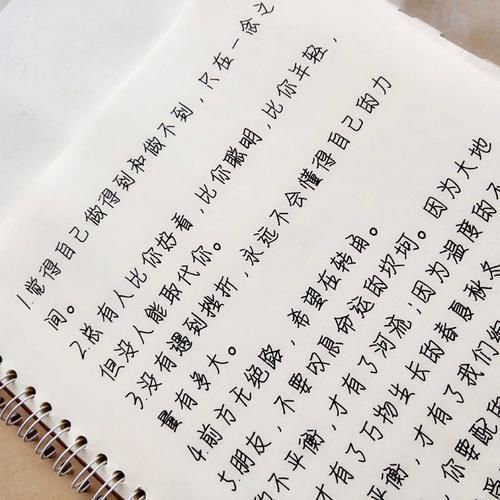 1.觉得自己做得到和做不到，只在一念之
间。
2.总有人比你好看，比你聪明，比你年轻，
但没人能取代你。
3.没有遇到挫折，永远不会懂得自己的力
量有多大。
4.前方无绝路，希望在转角。
5.朋友，不要叹息命运的坎坷。因为大地
的不平衡，才有了河流；因为温度的不
平衡，才有了万物生长的春夏秋冬
，才有了我们
你要配